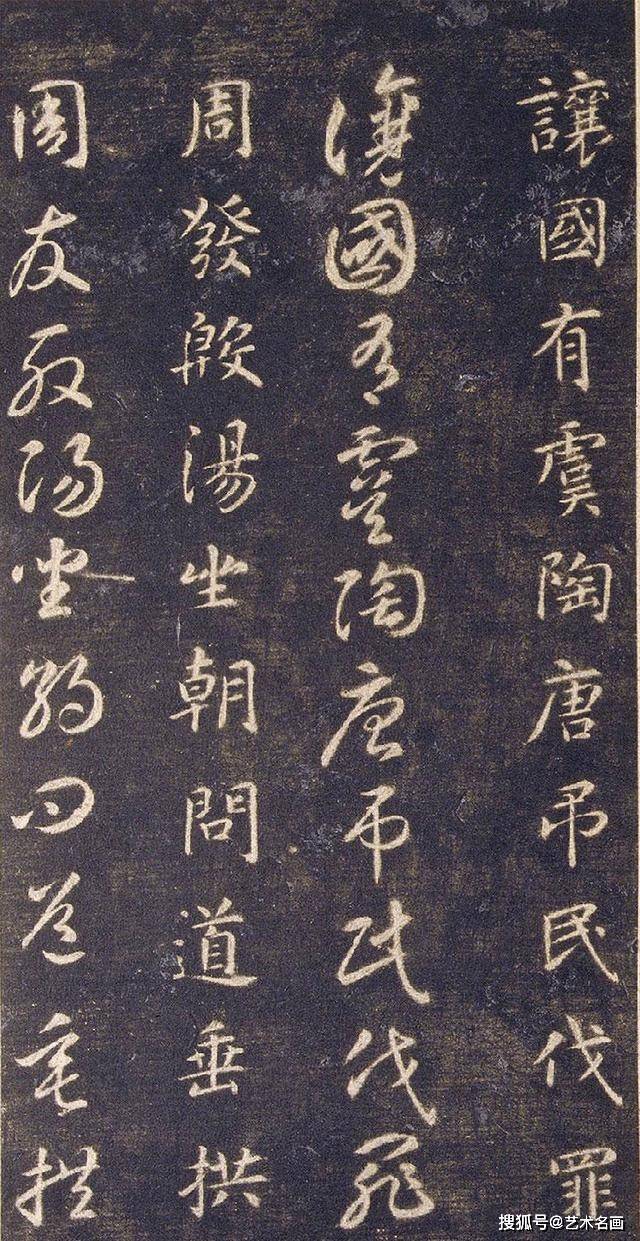 讓國有虞陶唐弔民伐罪
讓國有虞陶唐弔民伐罪
周發殷湯坐朝問道垂拱
周發殷湯坐朝問道垂拱
搜狐号@艺术名画